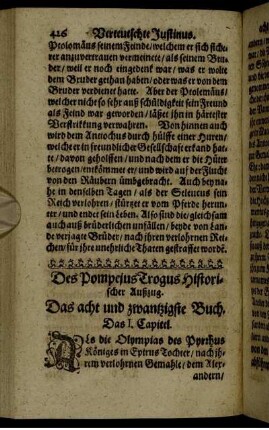 426 Verteutschte Justinus.
Ptolomäus seinem Feinde/ welchem er sich siche-
rer anzuvertrauen vermeinete/ als seinem Bru-
der/ weil er noch eingedenk war/ was er wolte
dem Bruder gethan haben/ oder was er von dem
Bruder verdienet hatte. Aber der Ptolemäus/
welcher nicht so sehr auß schuldigkeit sein Freund
als Feind war geworden/ lässet ihn in härtester
Verstrikkung verwahren. Von hinnen auch
wird dem Antiochus durch hülffe einer Huren/
welche er in freundlicher Gesellschaft erkand hat-
te/ davon geholffen/ und nach dem er die Hüter
betrogen/ entkömmet er/ und wird auf der Flucht
von den Räubern ümgebracht. Auch beyna-
he in denselben Tagen/ als der Seleucus sein
Reich verlohren/ stürzet er vom Pferde herun-
ter/ und endet sein Leben. Also sind die/ gleichsam
auch auß brüderlichen unfällen/ beyde von Lan-
de verjagte Brüder/ nach ihren verlohrnen Rei-
chen/ für ihre unehrliche Thaten gestraffet worden.
Des Pompejus Trogus Histori-
scher Außzug.
Das acht und zwantzigste Buch.
Das I. Capitel.
Als die Olympias des Pyrrhus
Königes in Epirus Tochter/ nach ih-
rem verlohrnen Gemahle/ dem Alex-
andern/